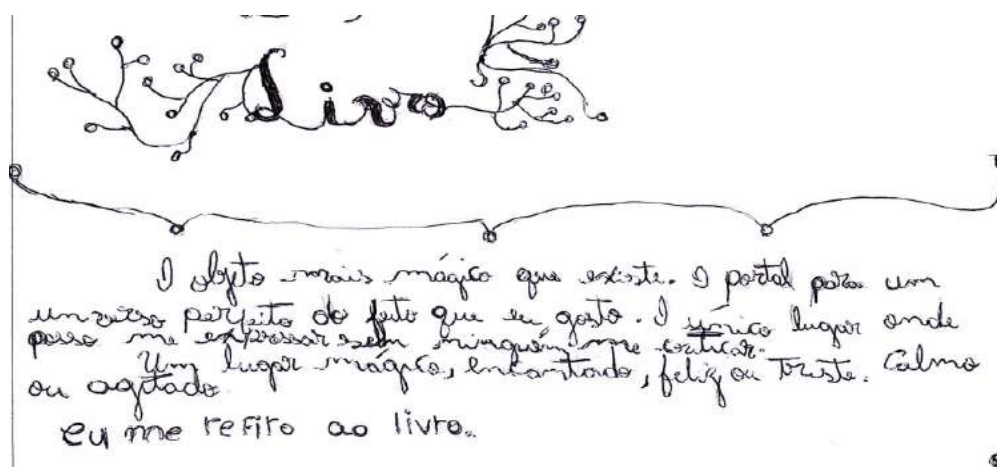 Livro
O objto mais mágico que existe. O portal para um
universo perfeito do jeito que eu gosto. O único lugar onde
posso me expressar sem ninguém me criticar.
Um lugar mágico, encantado, feliz ou triste. Calmo
ou agitado
Eu me refiro ao livro.